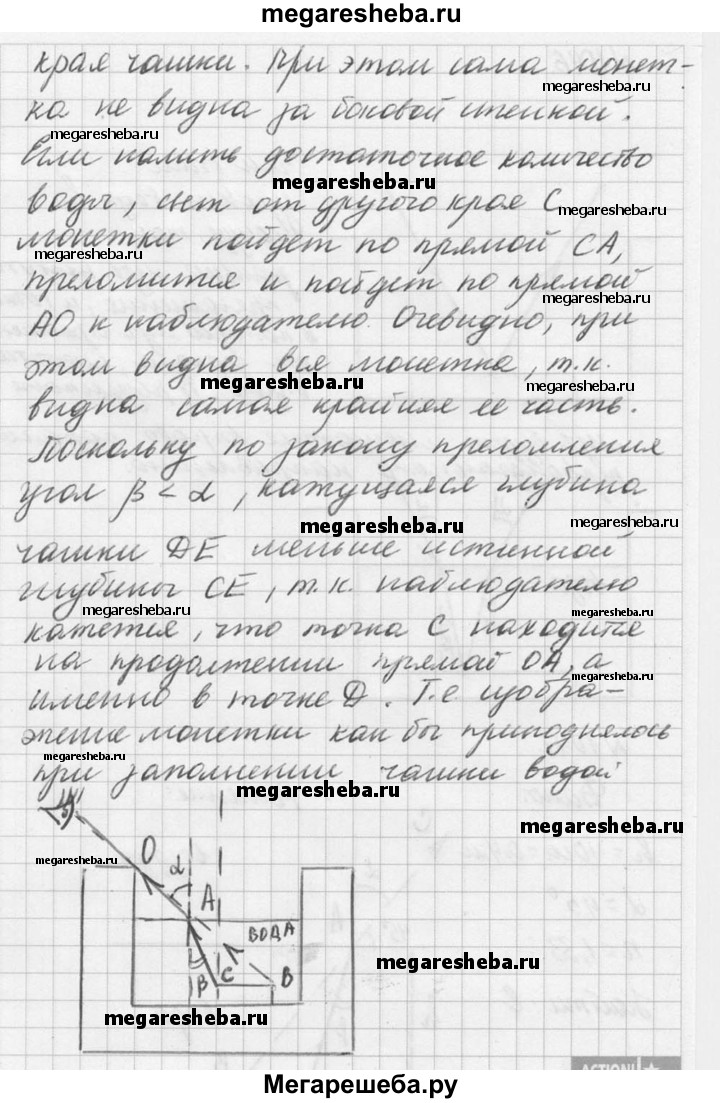 megaresheba.ru
края чашки. При этом сама монет-
ка не видна за боковой стенкой.
megaresheba.ru
megaresheba.ru
Если налить достаточное количество
megaresheba.ru
воды, свет от другого края С
megaresheba.ru
монетки пойдет по прямой СА,
megaresheba.ru
преломится и пойдет по прямой
megaresheba.ru
АО к наблюдателю. Очевидно, при
этом видна вся монетка, т.к.
megaresheba.ru
megaresheba.ru
видна самая крайняя ее часть.
Поскольку по закону преломления
угол β < α, кажущаяся глубина
megaresheba.ru
megaresheba.ru
чашки DE меньше истинной
глубины СЕ, т.к. наблюдателю
megaresheba.ru
megaresheba.ru
кажется, что точка С находится
на продолжении прямой ОА, а
megaresheba.ru
именно в точке D. Т.е. изобра-
жение монетки как бы приподнялось
megaresheba.ru
при заполнении чашки водой
megaresheba.ru
megaresheba.ru
O
α
megaresheba.ru
A
ВОДА
megaresheba.ru
β
C
B
megaresheba.ru
ACTION!
Мегарешеба.ру